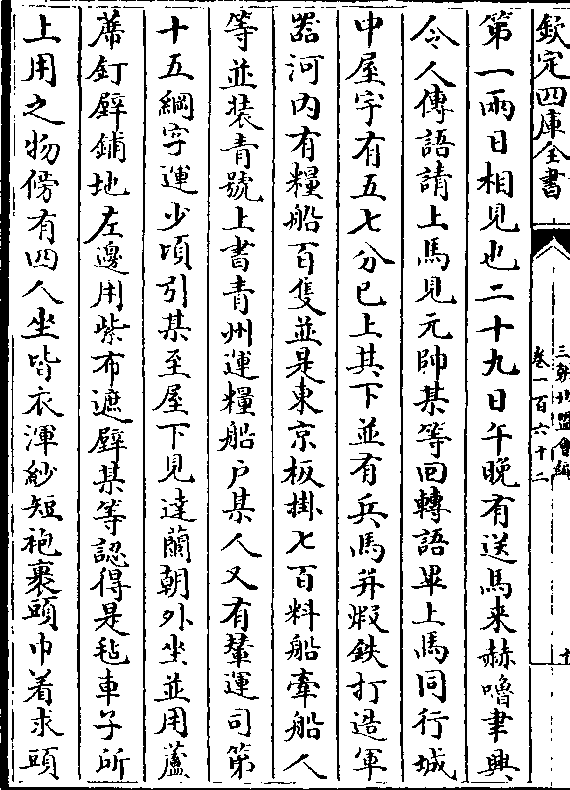 欽定四庫全書
三朝北盟會編
卷一百六十二
十
第一兩日相見也二十九日午晚有送馬来赫嚕聿興
令令人傳語請上馬見元帥某等回轉語畢上馬同行城
中屋宇有五七分已上其下並有兵馬并煅鉄打造軍
器河内有糧船百隻並是東京板掛七百料船牽船人
等並裝青號上書青州運糧船户某人又有輦運司第
十五綱字運少頃引某至屋下見達蘭朝外坐並用蘆
蓆釘壁鋪地左邊用紫布遮壁某等認得是氊車子所
上用之物傍有四人坐皆衣渾紗短袍裹頭巾着求頭